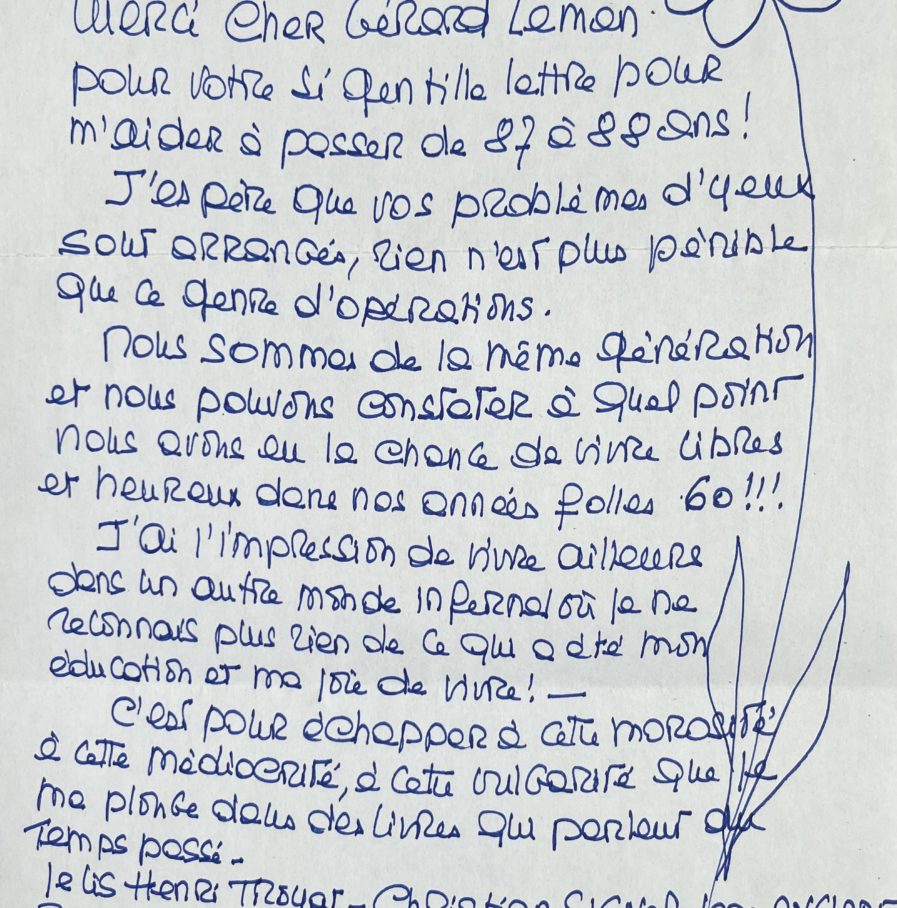 Merci Cher Gérard Leman
pour votre si gentille lettre pour
m'aider à passer de 87 à 88 ans !
J'espère que vos problèmes d'yeux
sont arrangés, rien n'est plus pénible
que ce genre d'opérations.
Nous sommes de la même génération
et nous pouvons constater à quel point
nous avons eu la chance de vivre libres
et heureux dans nos années folles 60 !!!
J'ai l'impression de vivre ailleurs
dans un autre monde infernal où je ne
reconnais plus rien de ce qui a été mon
éducation et ma joie de vivre ! —
C'est pour échapper à cette morosité
à cette médiocrité, à cette vulgarité que je
me plonge dans des livres qui parlent du
Temps passé -
Je lis Henri Troyat - Christian